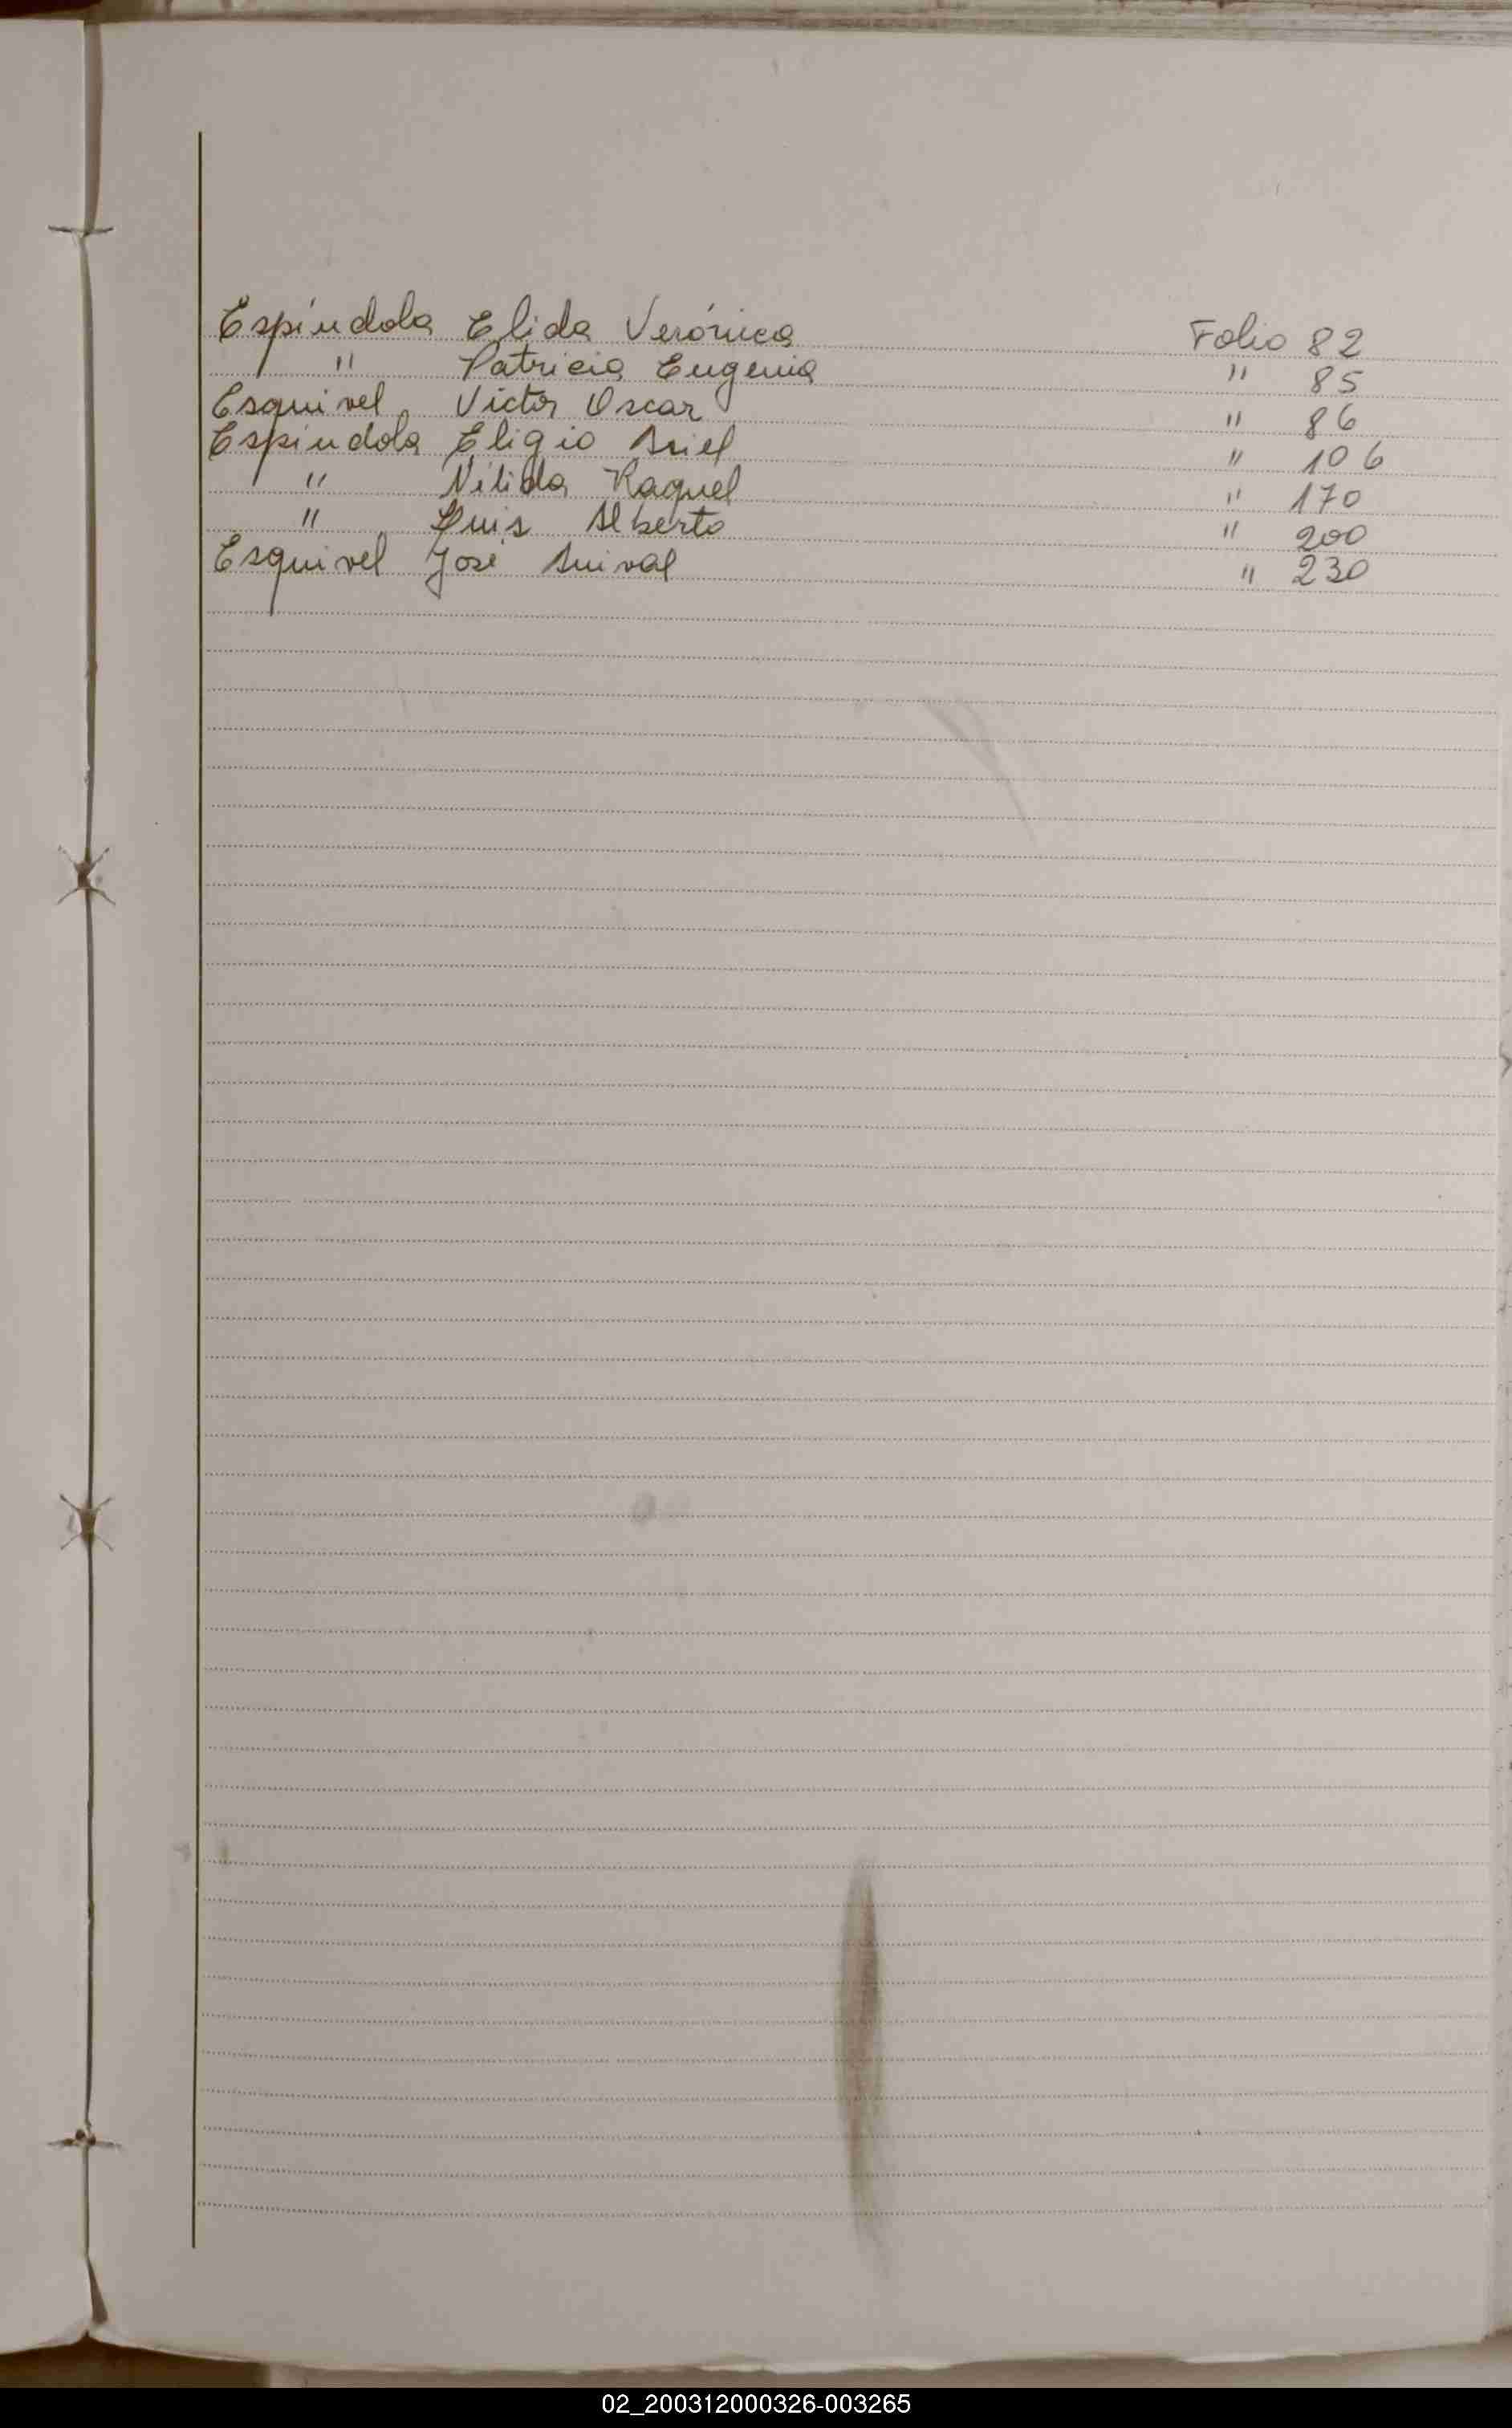 Espíndola Elida Verónica Folio 82
" Patricia Eugenia " 85
Esquivel Victor Oscar " 86
Espíndola Eligio Ariel " 106
" Nélida Raquel " 170
" Luis Alberto " 200
Esquivel José Anival " 230
02_200312000326-003265